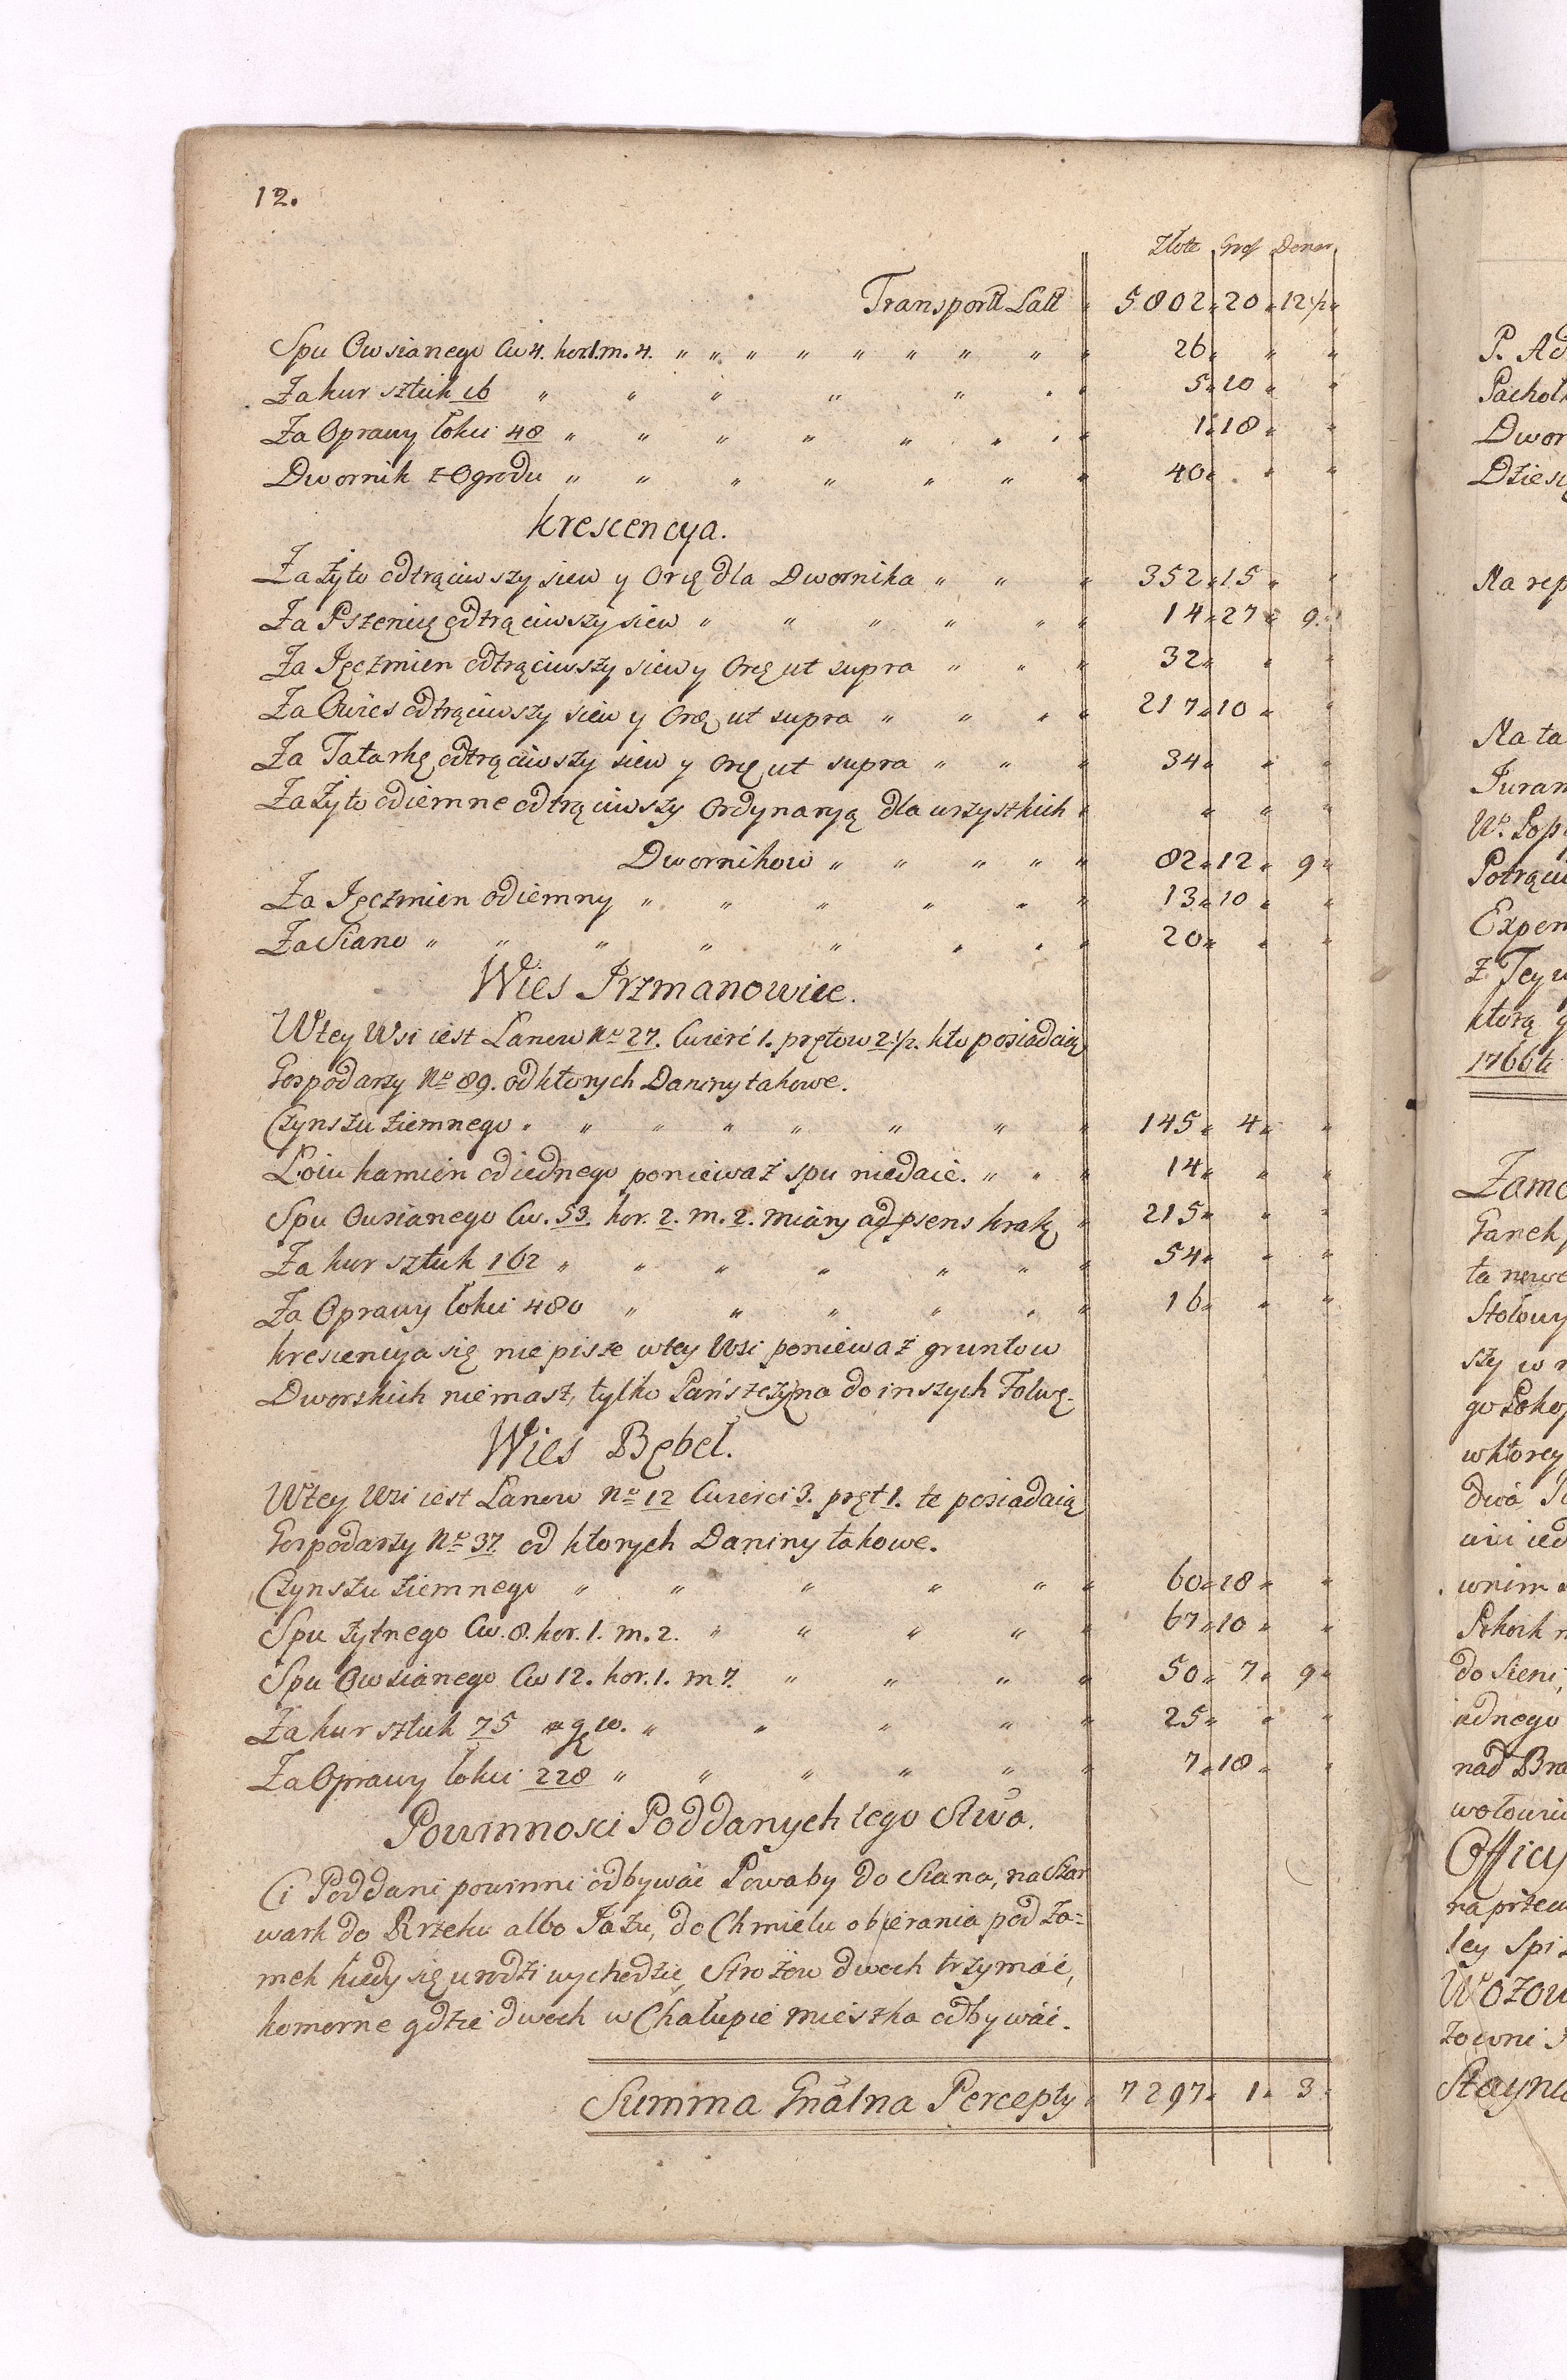 12.
Złote Gro Denar
Transportt Latt 5802 20 12 1/2
Spu Owsianego Cw 4. kor. 1. m. 4. 26
Za kur sztuk 16 5 10
Za Oprawy łokci 48 1 18
Dwornik z Ogrodu 40
krescencya.
Za Żyto odtrąciwszy siew y Orę dla Dwornika 352 15
Za Pszenicę odtrąciwszy siew 14 27 9
Za Jęczmien odtrąciwszy siew y Orę ut supra 32
Za Owies odtrąciwszy siew y Orę ut supra 217 10
Za Tatarkę odtrąciwszy siew y Orę ut supra 34
Za Żyto odiemne odtrąciwszy Ordynaryą dla wszystkich
Dwornikow 82 12 9
Za Jęczmien odiemny 13 10
Za Siano 20
Wies Jrzmanowice.
Wtey Wsi iest Lanow No 27. Cwierć 1. prętow 2 1/2. kto posiadaią
Gospodarzy No 89. od ktorych Daniny takowe.
Czynszu ziemnego 145 4
Łoiu kamień od iednego poniewaz spu niedaie. 14
Spu Owsianego Cw. 53. kor. 2. m. 2. miary 215
Za kur sztuk 162 54
Za Oprawy łokci 480 16
krescencya się nie pisze wtey Wsi poniewaz gruntow
Dworskich niemasz, tylko Pańszczyzna do inszych Folwę.
Wies Bębel.
Wtey Wsi iest Lanow No 12 Cwierci 3. pręt 1. te posiadaią
Gospodarzy No 37. od ktorych Daniny takowe.
Czynszu ziemnego 60 18
Spu zytnego Cw. 8. kor. 1. m. 2. 67 10
Spu Owsianego Cw 12. kor. 1. m 7. 50 7 9
Za kur sztuk 75 a g 10. 25
Za Oprawy łokci 228 7 18
Powinnosci Poddanych tego Stwa.
Ci Poddani powinni odbywać Powaby do Siana, na Szar
wark do Rzeku albo Jazu, do Chmielu obierania pod Za=
mek kiedy się urodzi wychodzić, Strozow dwoch trzymać,
komorne gdzie dwoch w Chałupie mieszka odbywać.
Summa Gnalna Percepty 7297 1 3
P. Ad
Pachoł
Dwor
Dzies
Na rep
Na ta
Juram
Potrąci
Expen
z Tey
ktorą
1766
Zam
Ganek
ta nowe
Stołowy
szy w
go Poko
wktorey
dwa
wnim
Pokoik
do Sieni
iednego
nad Bra
Officy
na przeci
tey Spi
Wozow
zowni
Stayni